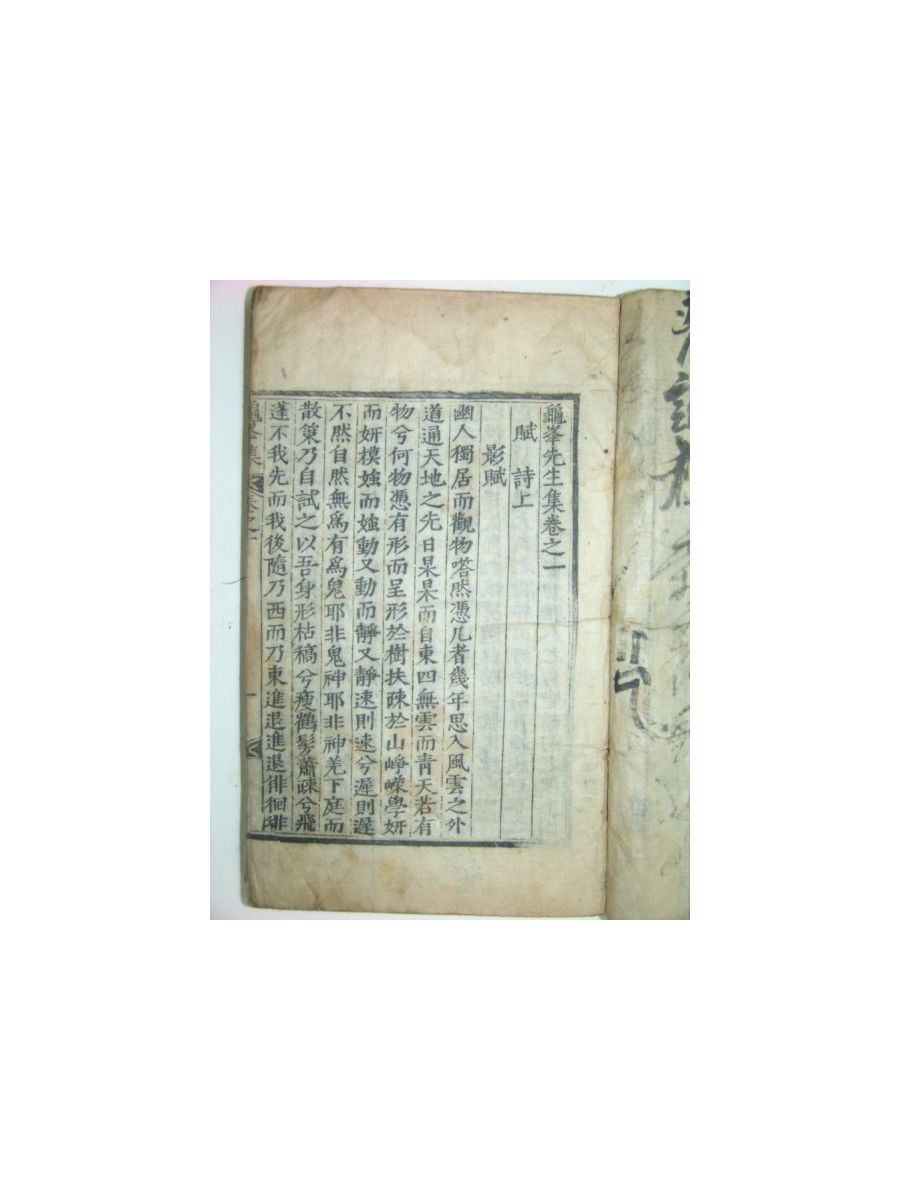 龜峯先生集卷之一
賦 詩上
影賦
幽人獨居而觀物嗒然憑几者幾年思入風雲之外
道通天地之先日杲杲而自東四無雲而青天若有
物兮何物憑有形而呈形於樹扶疎於山崢嶸學妍
而妍模媸而媸動又動而靜又靜速則速兮遲則遲
不然自然無爲有爲鬼耶非鬼神耶非神羌下庭而
散策乃自試之以吾身形枯槁兮瘦鶴髮蕭疎兮飛
蓬不我先而我後隨乃西而乃東進退進退徘徊徘
龜峯集 卷之一 一